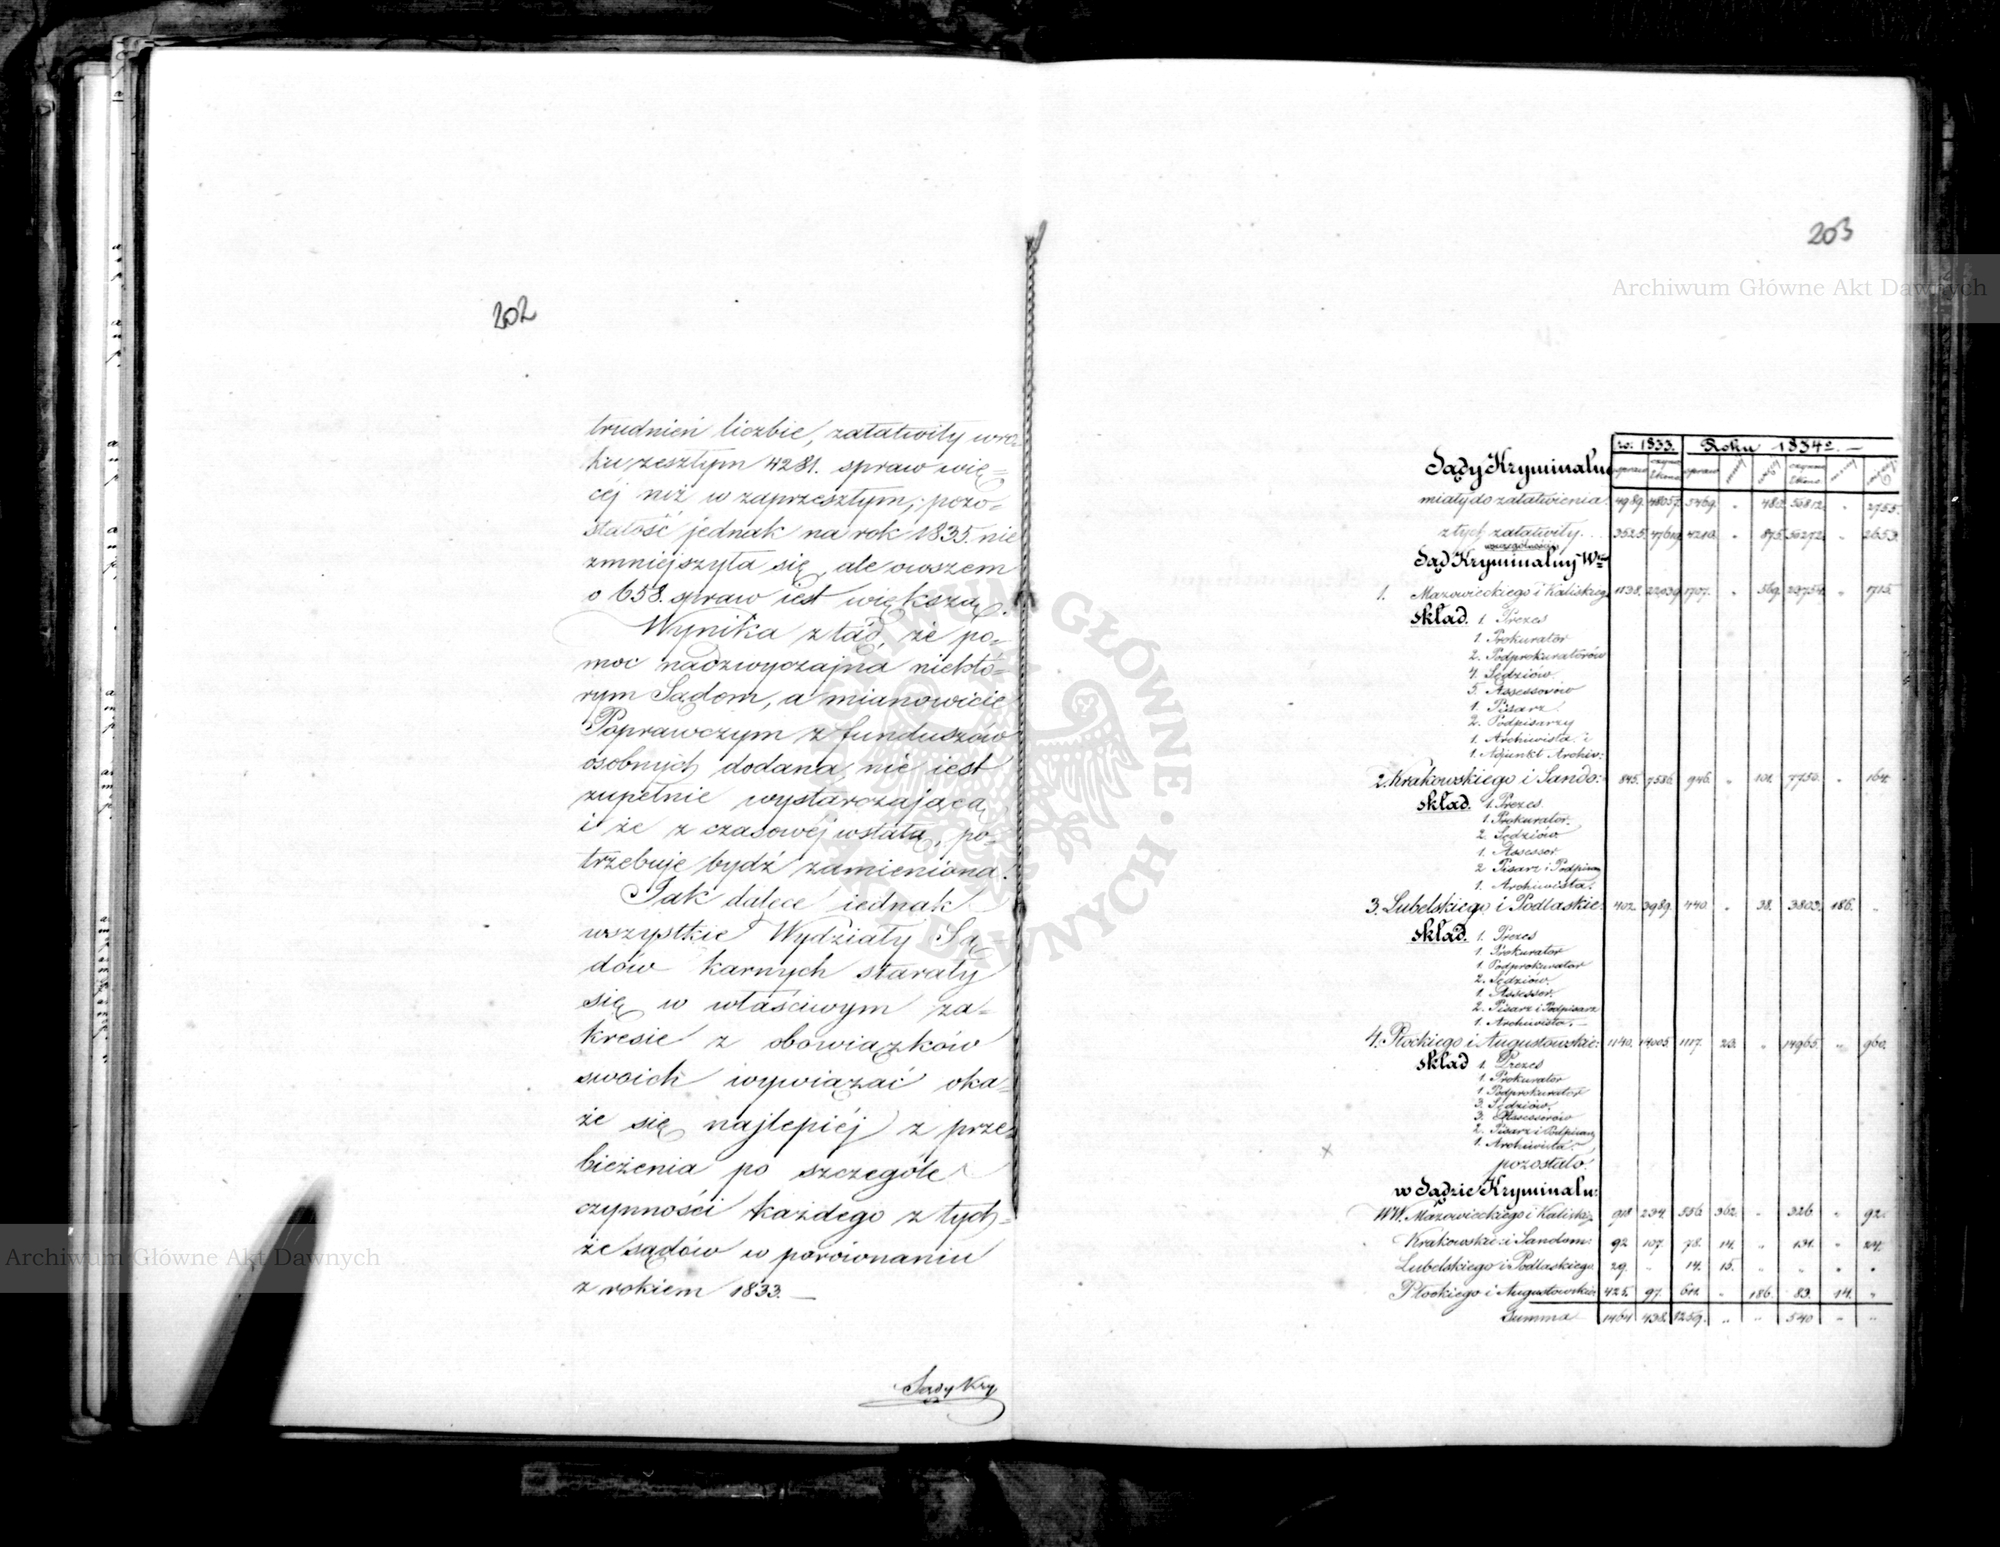 202
trudnień liczbie, załatwiły w ro-
ku zeszłym 4281. spraw wię-
cej niż w zaprzeszłym; pozo-
stałość jednak na rok 1835. nie
zmniejszyła się, ale owszem
o 658. spraw iest większą.
Wynika ztąd, że po-
moc nadzwyczajna niektó-
rym Sądom, a mianowicie
Poprawczym z funduszów
osobnych dodana, nie iest
zupełnie wystarczającą,
i że z czasowéj w stałą, po-
trzebuje bydź zamienioną.
Jak dalece iednak
wszystkie Wydziały Są-
dów karnych starały
się w właściwym za-
kresie z obowiązków
swoich wywiązać oka-
że się najlepiéj z prze-
bieżenia po szczególe
czynności każdego z tych-
że sądów w porównaniu
z rokiem 1833. —
Sądy Kry
203
w r. 1833. Roku 1834o. —
Sądy Kryminalne spraw spraw
miały do załatwienia 4989. 48057. 5469. „ 480. 50812. „ 2755.
z tych załatwiły . . 3525. 47619. 4210. „ 875. 50272. „ 2653.
w szczególności
Sąd Kryminalny Wtwa
1. Mazowieckiego i Kaliskieg. 1138. 22039. 1707. „ 569. 23754. „ 1715.
skład. 1. Prezes
1. Prokurator
2. Podprokuratorów
4. Sędziów
5. Assessorów
1. Pisarz
2. Podpisarzy
1. Archiwista i
1. Adjunkt Archiw:
2. Krakowskiego i Sando: 845. 7586. 946. „ 101. 7750. „ 164.
skład. 1. Prezes
1. Prokurator
2. Sędziów
1. Assessor
2. Pisarz i Podpisarz
1. Archiwista.
3. Lubelskiego i Podlaskie: 402. 3989. 440. „ 38. 3803. 186. „
skład. 1. Prezes
1. Prokurator
1. Podprokurator
2. Sędziów
1. Assessor.
2. Pisarz i Podpisarz
1. Archiwista. —
4. Płockiego i Augustowskie: 1140. 14005. 1117. 23. „ 14965. „ 960.
skład 1. Prezes
1. Prokurator
1. Podprokurator
3. Sędziów
3. Assessorów
2. Pisarz i Podpisarz
1. Archiwista.
pozostało:
w Sądzie Kryminaln:
WW. Mazowieckiego i Kalisk: 918 234. 556. 362. „ 326. „ 92.
Krakowskie: i Sandom: 92 107. 78. 14. „ 131. „ 24.
Lubelskiego i Podlaskiego 29. „ 14. 15. „ „ „ „
Płockiego i Augustowskie 425. 97. 611. „ 186. 83. 14. „
Summa 1464 438. 1259. „ „ 540 „ „
Archiwum Główne Akt Dawnych
Archiwum Główne Akt Dawnych
ARCHIWUM GŁÓWNE · AKT DAWNYCH ·